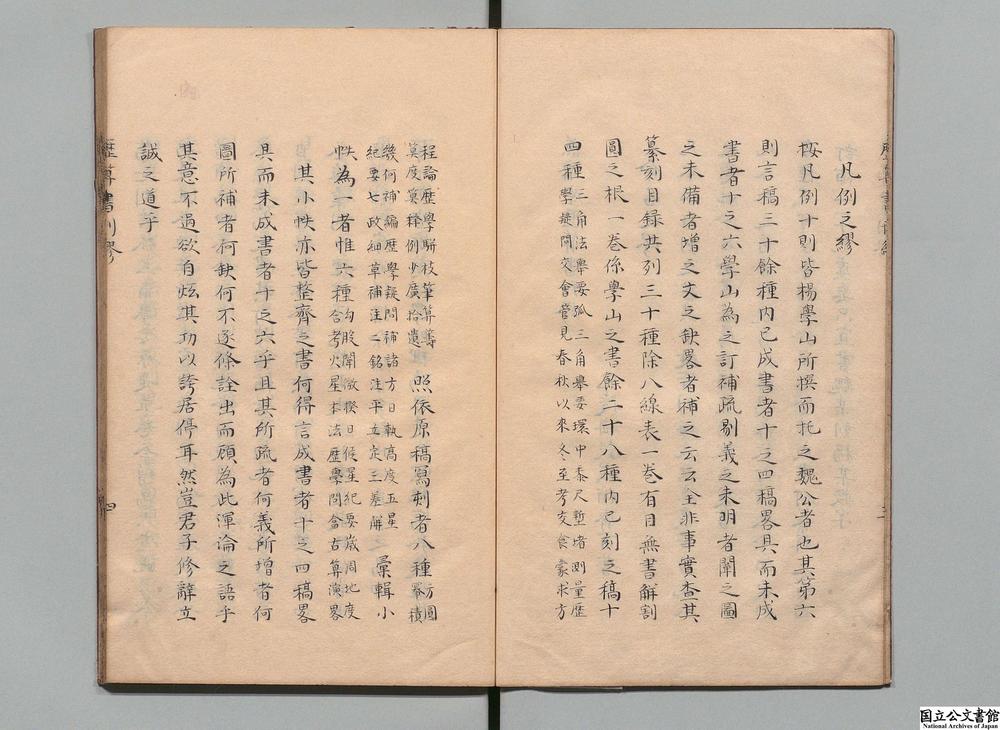 凡例之繆
按凡例十則皆楊學山所撰而托之魏公者也其第六
則言稿三十餘種內已成書者十之四稿畧具而未成
書者十之六學山為之訂補疏剔義之未明者闡之圖
之未備者增之文之缺畧者補之云云全非事實查其
纂刻目録共列三十種除八線表一卷有目無書解割
圜之根一卷係學山之書餘二十八種內已刻之稿十
四種三角法舉要弧三角舉要環中黍尺塹堵測量歴
學疑問交會管見春秋以來冬至考交食蒙求方
程論歴學駢枝筆算籌
算度算釋例少廣拾遺照依原稿寫刺者八種方圓
冪積
幾何補編歴學疑問補諸方日軌高度五星
紀要七政細草補注二銘注平立定三差解彙輯小
帙為一者惟六種勾股闡微揆日候星紀要歲周地度
合考火星本法歴學問答古算演畧
其小帙亦皆整齊之書何得言成書者十之四稿畧
具而未成書者十之六乎且其所疏者何義所增者何
圖所補者何缺何不逐條詮出而顧為此渾論之語乎
其意不過欲自炫其功以誇居停耳然豈君子修辭立
誠之道乎
四
国立公文書館
National Archives of Japan